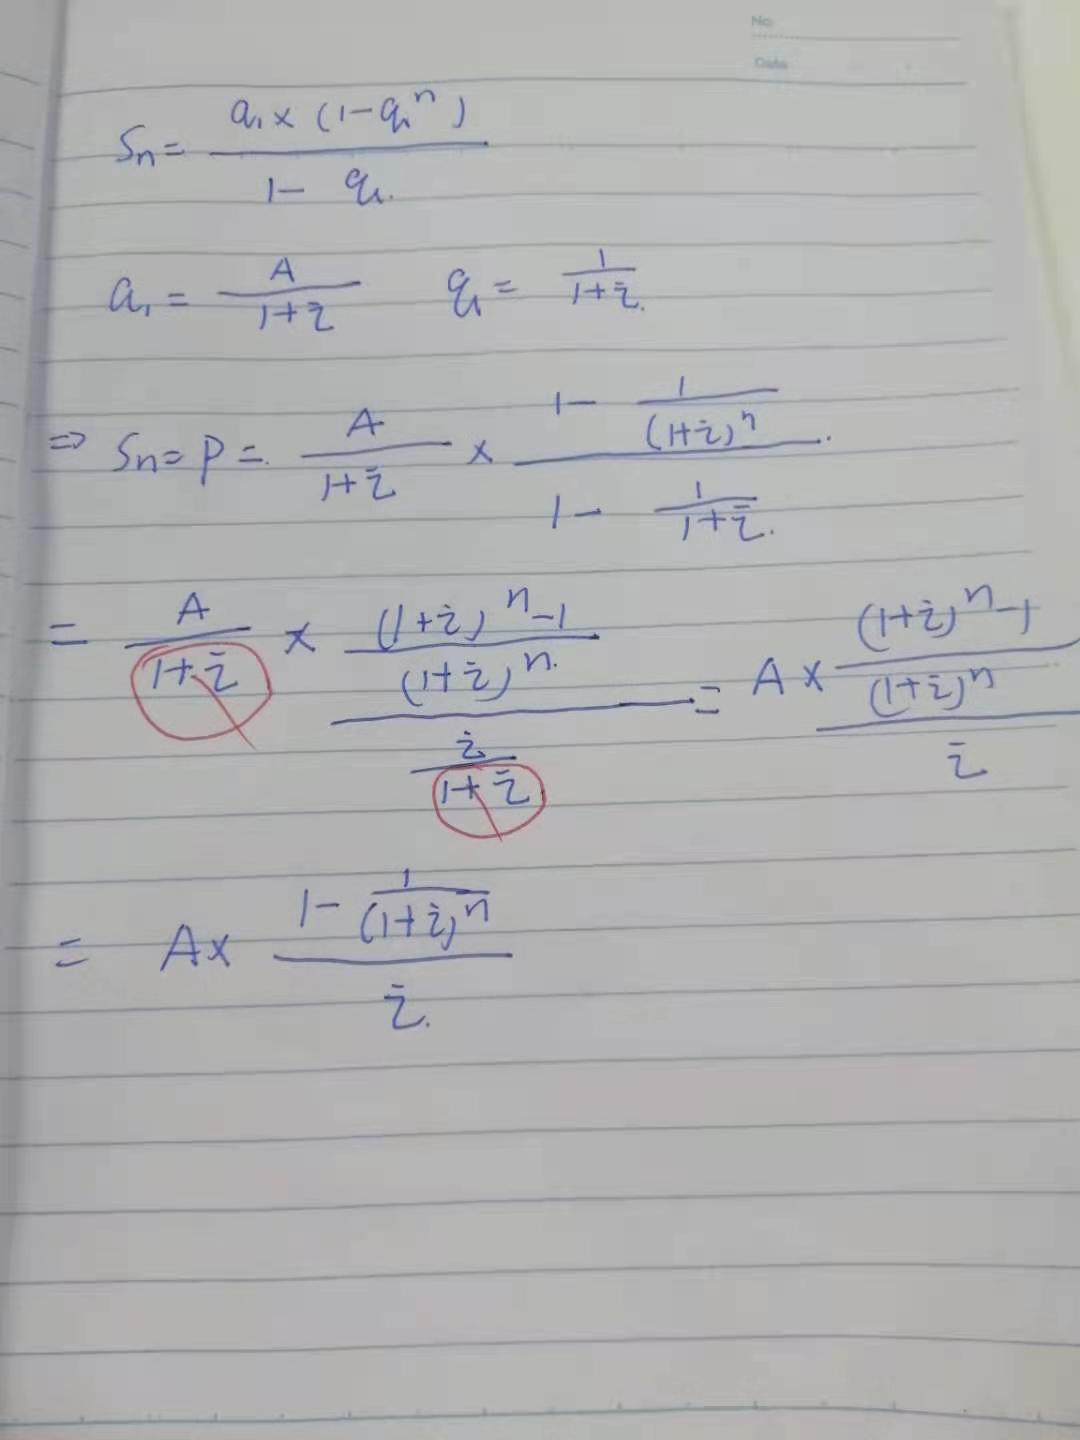 No.
Date
Sn = a₁ × (1 - qⁿ) / 1 - q.
a₁ = A / 1+i q = 1 / 1+i.
⇒ Sn = P =. A / 1+i × (1 - 1/(1+i)ⁿ) / (1 - 1/1+i.)
= A / 1+i × ((1+i)ⁿ-1 / (1+i)ⁿ.) / (i / 1+i) = A × ((1+i)ⁿ-1 / (1+i)ⁿ) / i
= A × (1 - 1/(1+i)ⁿ) / i.